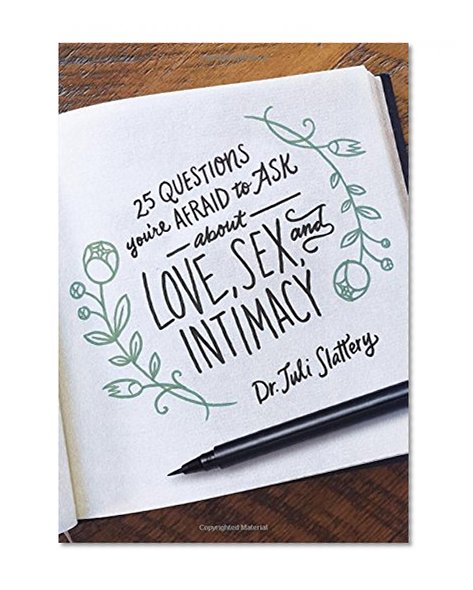 25 QUESTIONS
you're AFRAID to ASK
about
LOVE, SEX, and
INTIMACY
Dr. Juli Slattery
Copyrighted Material